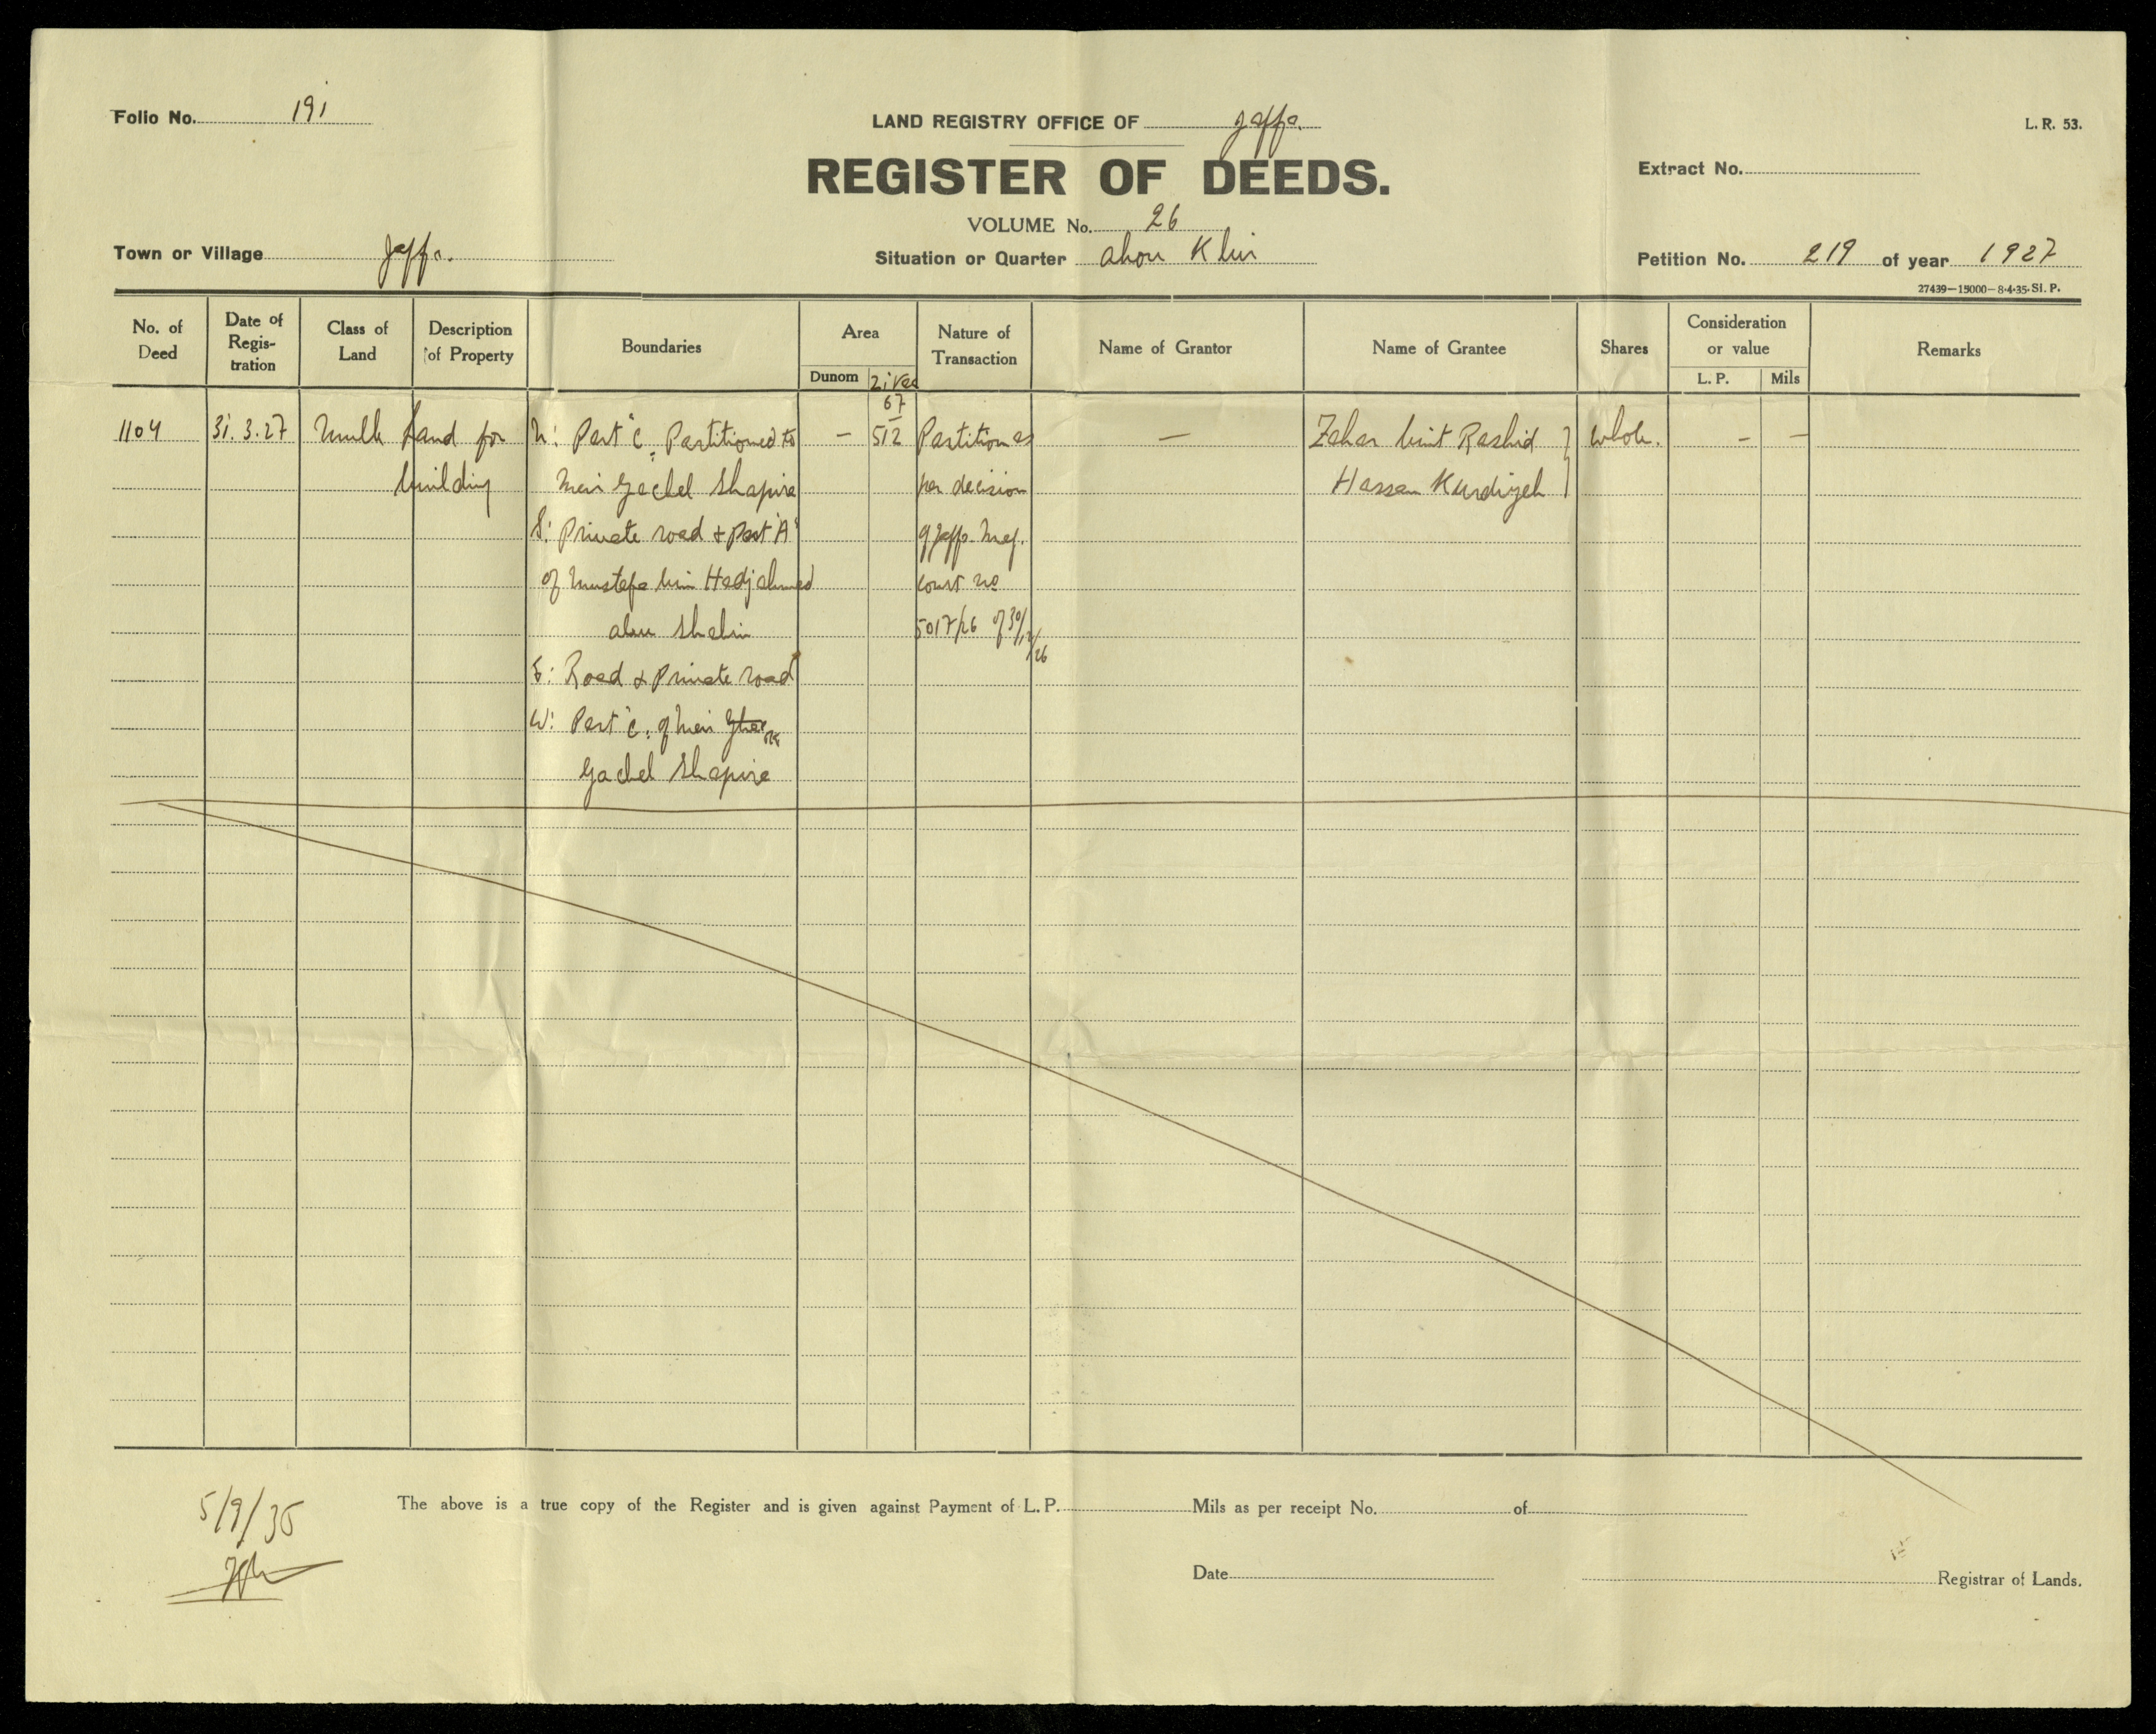 Folio No. 191
LAND REGISTRY OFFICE OF Jaffa.
L. R. 53.
REGISTER OF DEEDS.
Extract No.
VOLUME No. 26
Town or Village Jaffa.
Situation or Quarter
Petition No. 219 of year 1927
27439—15000—8·4·35· Sl. P.
No. of Deed
Date of Regis-tration
Class of Land
Description of Property
Boundaries
Area
Dunom
Nature of Transaction
Name of Grantor
Name of Grantee
Shares
Consideration or value
L. P.
Mils
Remarks
1104
31.3.27
Mulk
Land for
building
N: Part "C" Partitioned to
Meir Gechel Shapira
S: Private road & Part "A"
of Mustafa bin Hadj Ahmed
abu Shahin
E: Road & Private road
W: Part "C" of Meir
Gechel Shapira
—
67
512
Partition as
per decision
of Jaffa Mag.
court no
5017/26 of 30/12/26
—
Zahar bint Rashid
Hassan Kurdiyeh
whole.
—
—
5/9/35
The above is a true copy of the Register and is given against Payment of L. P. Mils as per receipt No. of
Date
Registrar of Lands.